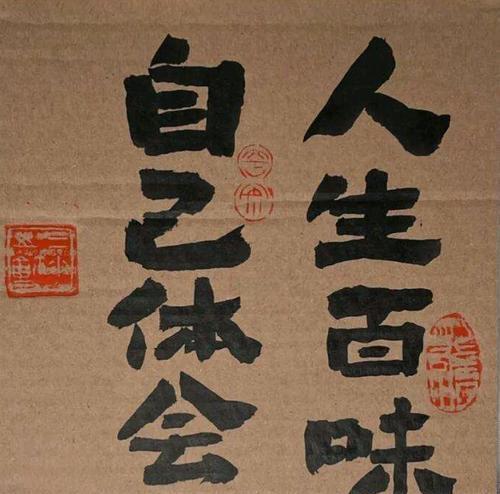 人生百味
自己体会